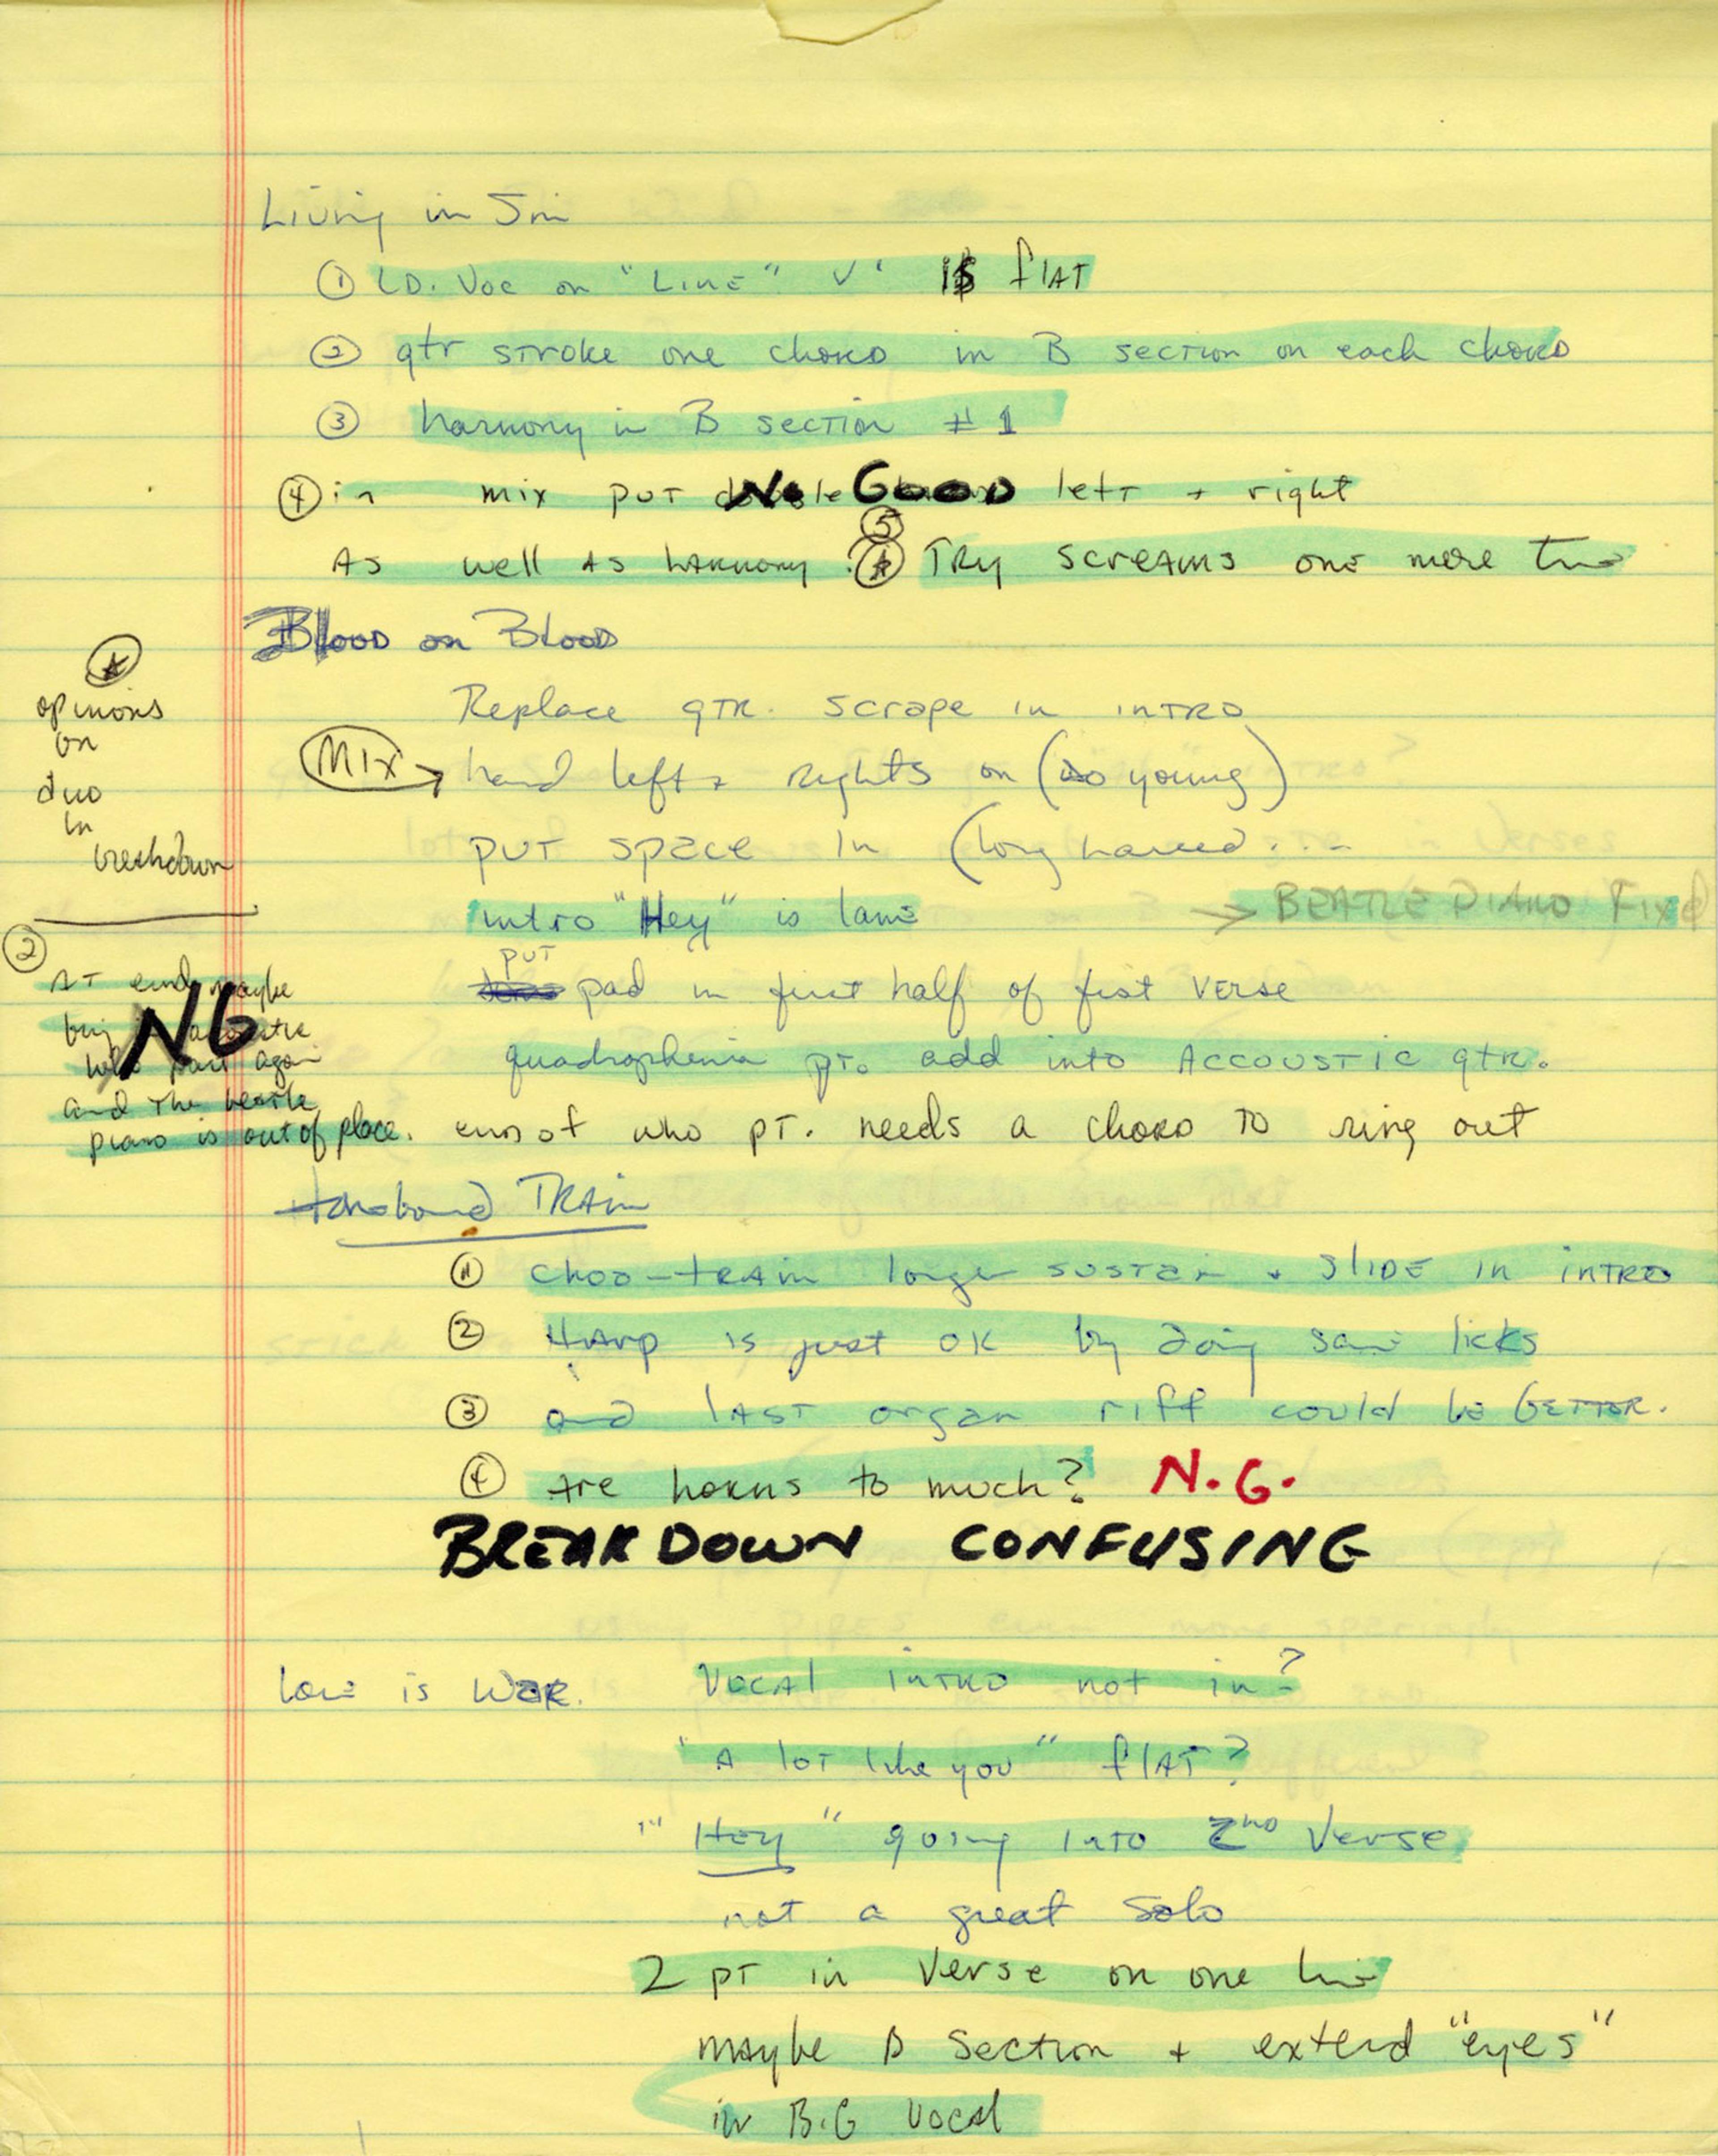 Living in Sin
① LD. Voc on "Line" V' IS flAT
② gtr stroke one chord in B section on each chord
③ harmony in B section #1
④ in mix put double No GooD left + right
⑤
As well as harmony. Try screams one more time
Blood on Blood
opinions
on
duo
in
breakdown
Replace gtr. scrape in intro
Mix → hard left + rights on (so young)
put space in (long haired...
intro "Hey" is lame
→ BEATLE PIANO Fixed
put
pad in first half of fist verse
quadrophenia pt. add into Accoustic gtr.
end of who pt. needs a chord to ring out
②
AT end maybe
NG
bring acoustic
who part again
and the beatle
piano is out of place.
Homebound Train
① choo-train longer sustain + slide in intro
② Harp is just ok by doing same licks
③ and last organ riff could be better.
④ are horns to much? N.G.
BREAKDOWN CONFUSING
Love is War. Vocal intro not in?
"A lot like you" flAT?
"Hey" going into 2nd Verse
not a great solo
2 pt in Verse on one line
maybe B Section + extend "eyes"
in B.G vocal